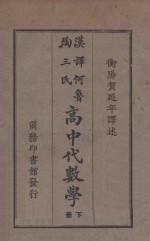 衡陽賀延年譯述
漢譯何魯
陶三氏
高中代數學
下冊
商務印書館發行